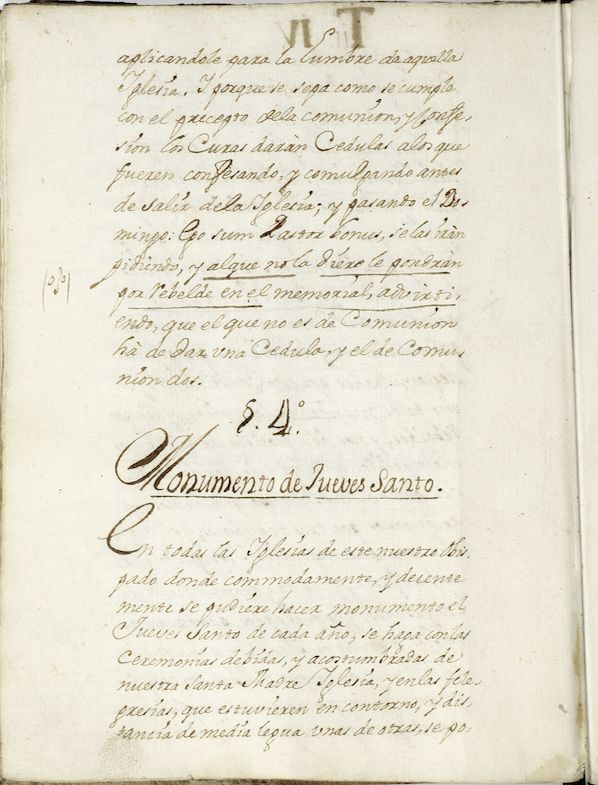 aplicandole para la lumbre de aquella
Iglesia. I porque se sepa como se cumple
con el precepto dela comunion, y Confe,
sion los Curas daràn Cedulas alos que
fueren confesando, y comulgando antes
de salir dela Iglesia; y pasando el Do,
mingo: Ego sum Pastor bonus, se las iràn
pidiendo, y alque no la diere le pondràn
por rebelde en el memorial, advirti,
endo, que el que no es de Comunion
hà de dar una Cedula, y el de Comu,
nion dos.
§. 4.º
Monumento de Jueves Santo.
En todas las Iglesias de este nuestro Obis,
pado donde commodamente, y decente
mente se pudiere hacer monumento el
Jueves Santo de cada año, se haga con las
Ceremonias debidas, y acostumbradas de
nuestra Santa Madre Iglesia, y en las fele,
gresias, que estuvieren en contorno, y dis,
tancia de media legua unas de otras, se po,